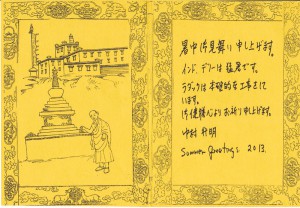 暑中御見舞い申し上げます。
インド、デリーは猛暑です。
ラダックは本格的な工事をして
います。
御健康心よりお祈り申し上げます。
中村
Summer Greetings 2013